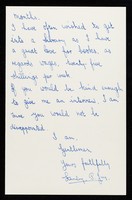 months.
I have often wished to get
into a library as I have
a great love for books. as
regards wages, twenty five
shillings per week
If you would be kind enough
to give me an interview I am
sure you would not be
disappointed
I am,
Gentlemen
Yours faithfully